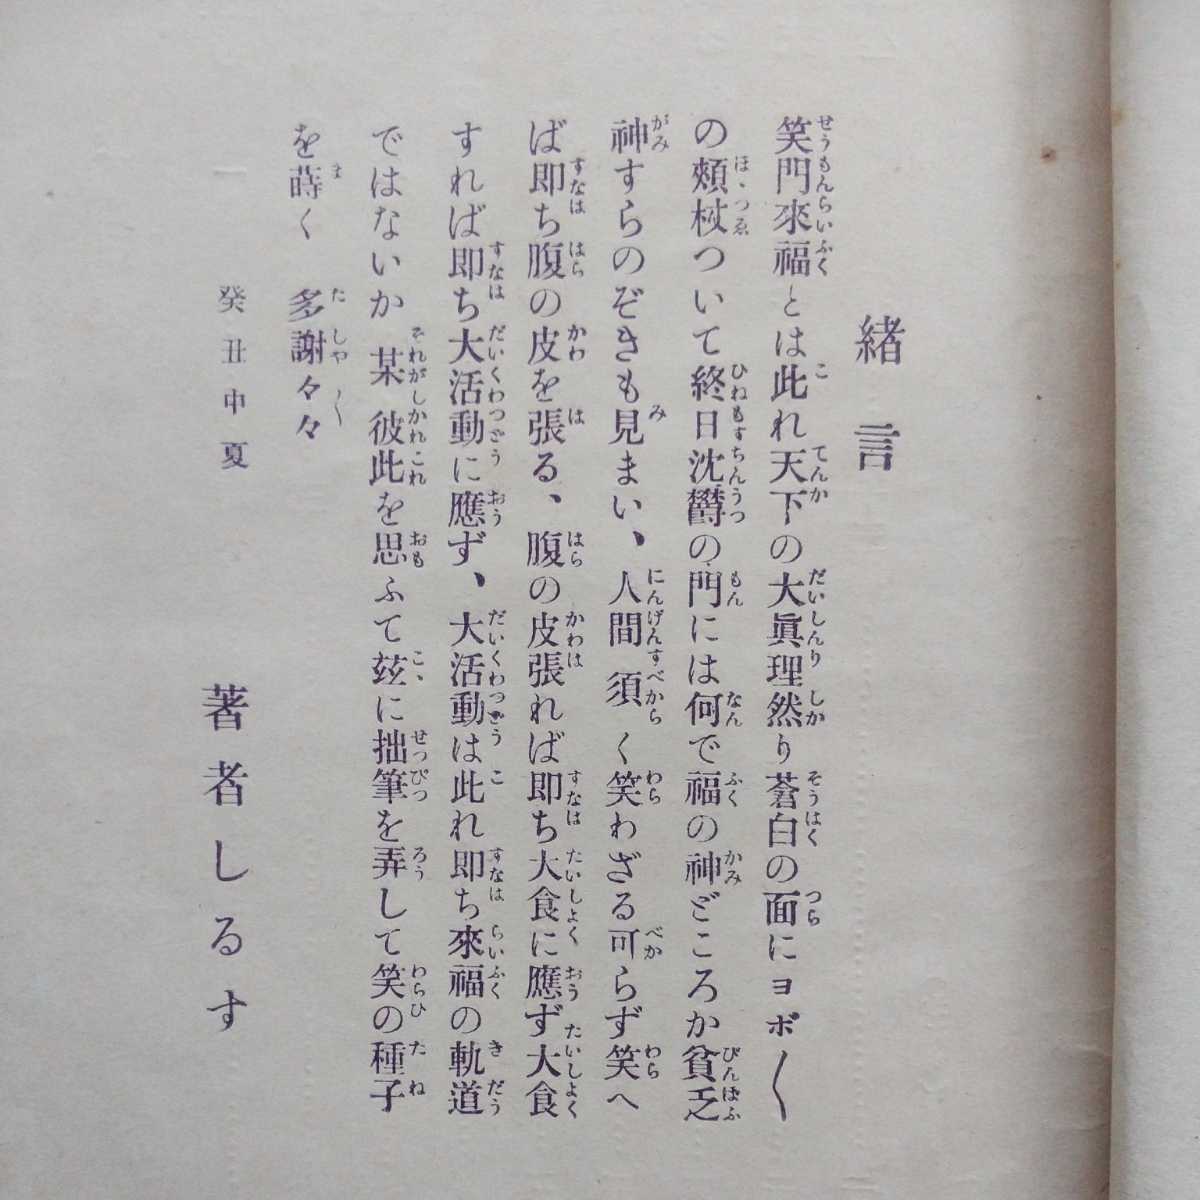 緒言
笑門來福とは此れ天下の大眞理然り蒼白の面にヨボ〱
の頰杖ついて終日沈欝の門には何で福の神どころか貧乏
神すらのぞきも見まい、人間須く笑わざる可らず笑へ
ば即ち腹の皮を張る、腹の皮張れば即ち大食に應ず大食
すれば即ち大活動に應ず、大活動は此れ即ち來福の軌道
ではないか 某 彼此を思ふて玆に拙筆を弄して笑の種子
を蒔く 多謝々々
癸丑中夏
著者しるす